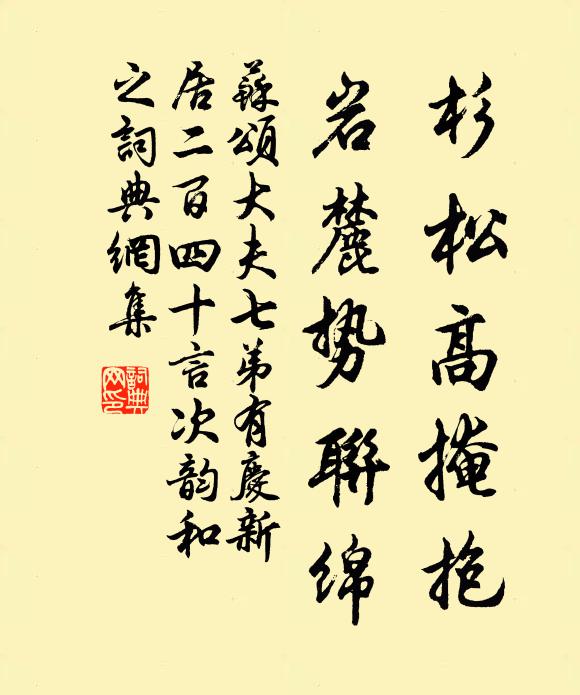 杉松高掩抱
岩麓势聯绵
蘇頌大夫七弟有慶新
居二百四十言次韵和
之詞典網集
詞典網印